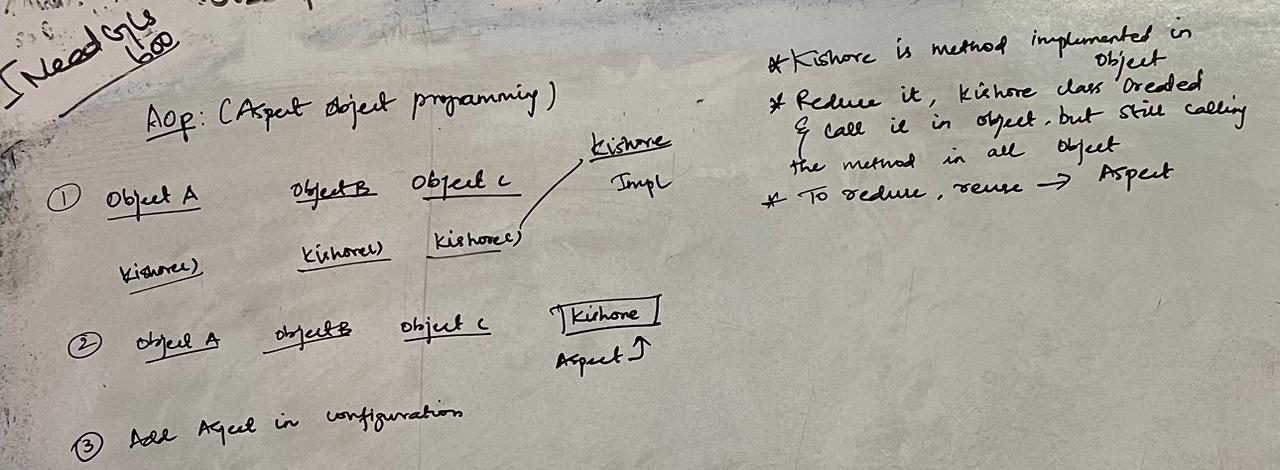 I Need Gyls
600
AOP: (Aspect Object programming)
① Object A Object B Object C Kishore
Impl
Kishore() Kishore() Kishore()
② Object A Object B Object C Kishore
Aspect
③ Add Aspect in configuration
* Kishore is method implemented in
Object
* Reduce it, Kishore class Created
& call it in object, but still calling
the method in all Object
* To reduce, reuse → Aspect